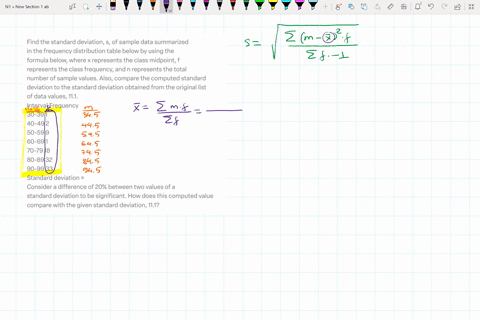 N1 » New Section 1 ab
Find the standard deviation, s, of sample data summarized
in the frequency distribution table below by using the
formula below, where x represents the class midpoint, f
represents the class frequency, and n represents the total
number of sample values. Also, compare the computed standard
deviation to the standard deviation obtained from the original list
of data values, 11.1.
Interval Frequency m
30-39 1 34.5
40-49 2 44.5
50-59 9 54.5
60-69 1 64.5
70-79 18 74.5
80-89 32 84.5
90-99 33 94.5
Standard deviation =
Consider a difference of 20% between two values of a
standard deviation to be significant. How does this computed value
compare with the given standard deviation, 11.1?
s = √ Σ (m - x̄)² · f / Σ f - 1
x̄ = Σ m · f / Σ f =